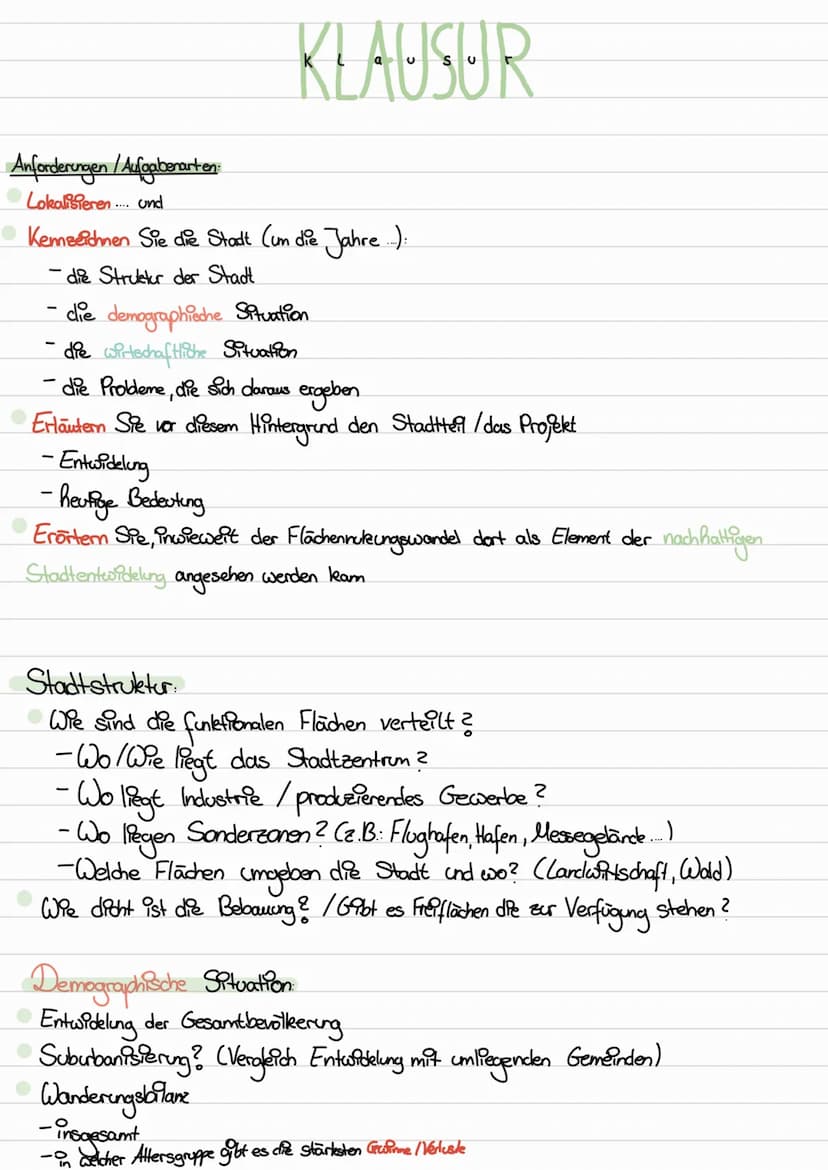 KLAUSUR
Klausur
Anforderungen / Aufgabenarten:
Lokalisieren .... und
Kennzeichnen Sie die Stadt (um die Jahre ...):
- die Struktur der Stadt
- die demographische Situation
- die wirtschaftliche Situation
- die Probleme, die sich daraus ergeben
Erläutern Sie vor diesem Hintergrund den Stadtteil / das Projekt
- Entwicklung
- heutige Bedeutung
Erörtern Sie, inwieweit der Flächennutzungswandel dort als Element der nachhaltigen
Stadtentwicklung angesehen werden kann
Stadtstruktur:
Wie sind die funktionalen Flächen verteilt?
- Wo/Wie liegt das Stadtzentrum?
- Wo liegt Industrie / produzierendes Gewerbe?
- Wo liegen Sonderzonen? (z.B.: Flughafen, Hafen, Messegelände ...)
- Welche Flächen umgeben die Stadt und wo? (Landwirtschaft, Wald)
Wie dicht ist die Bebauung? / Gibt es Freiflächen die zur Verfügung stehen?
Demographische Situation:
Entwicklung der Gesamtbevölkerung
Suburbanisierung? (Vergleich Entwicklung mit umliegenden Gemeinden)
Wanderungsbilanz
- insgesamt
- in welcher Altersgruppe gibt es die stärksten Gewinne / Verluste